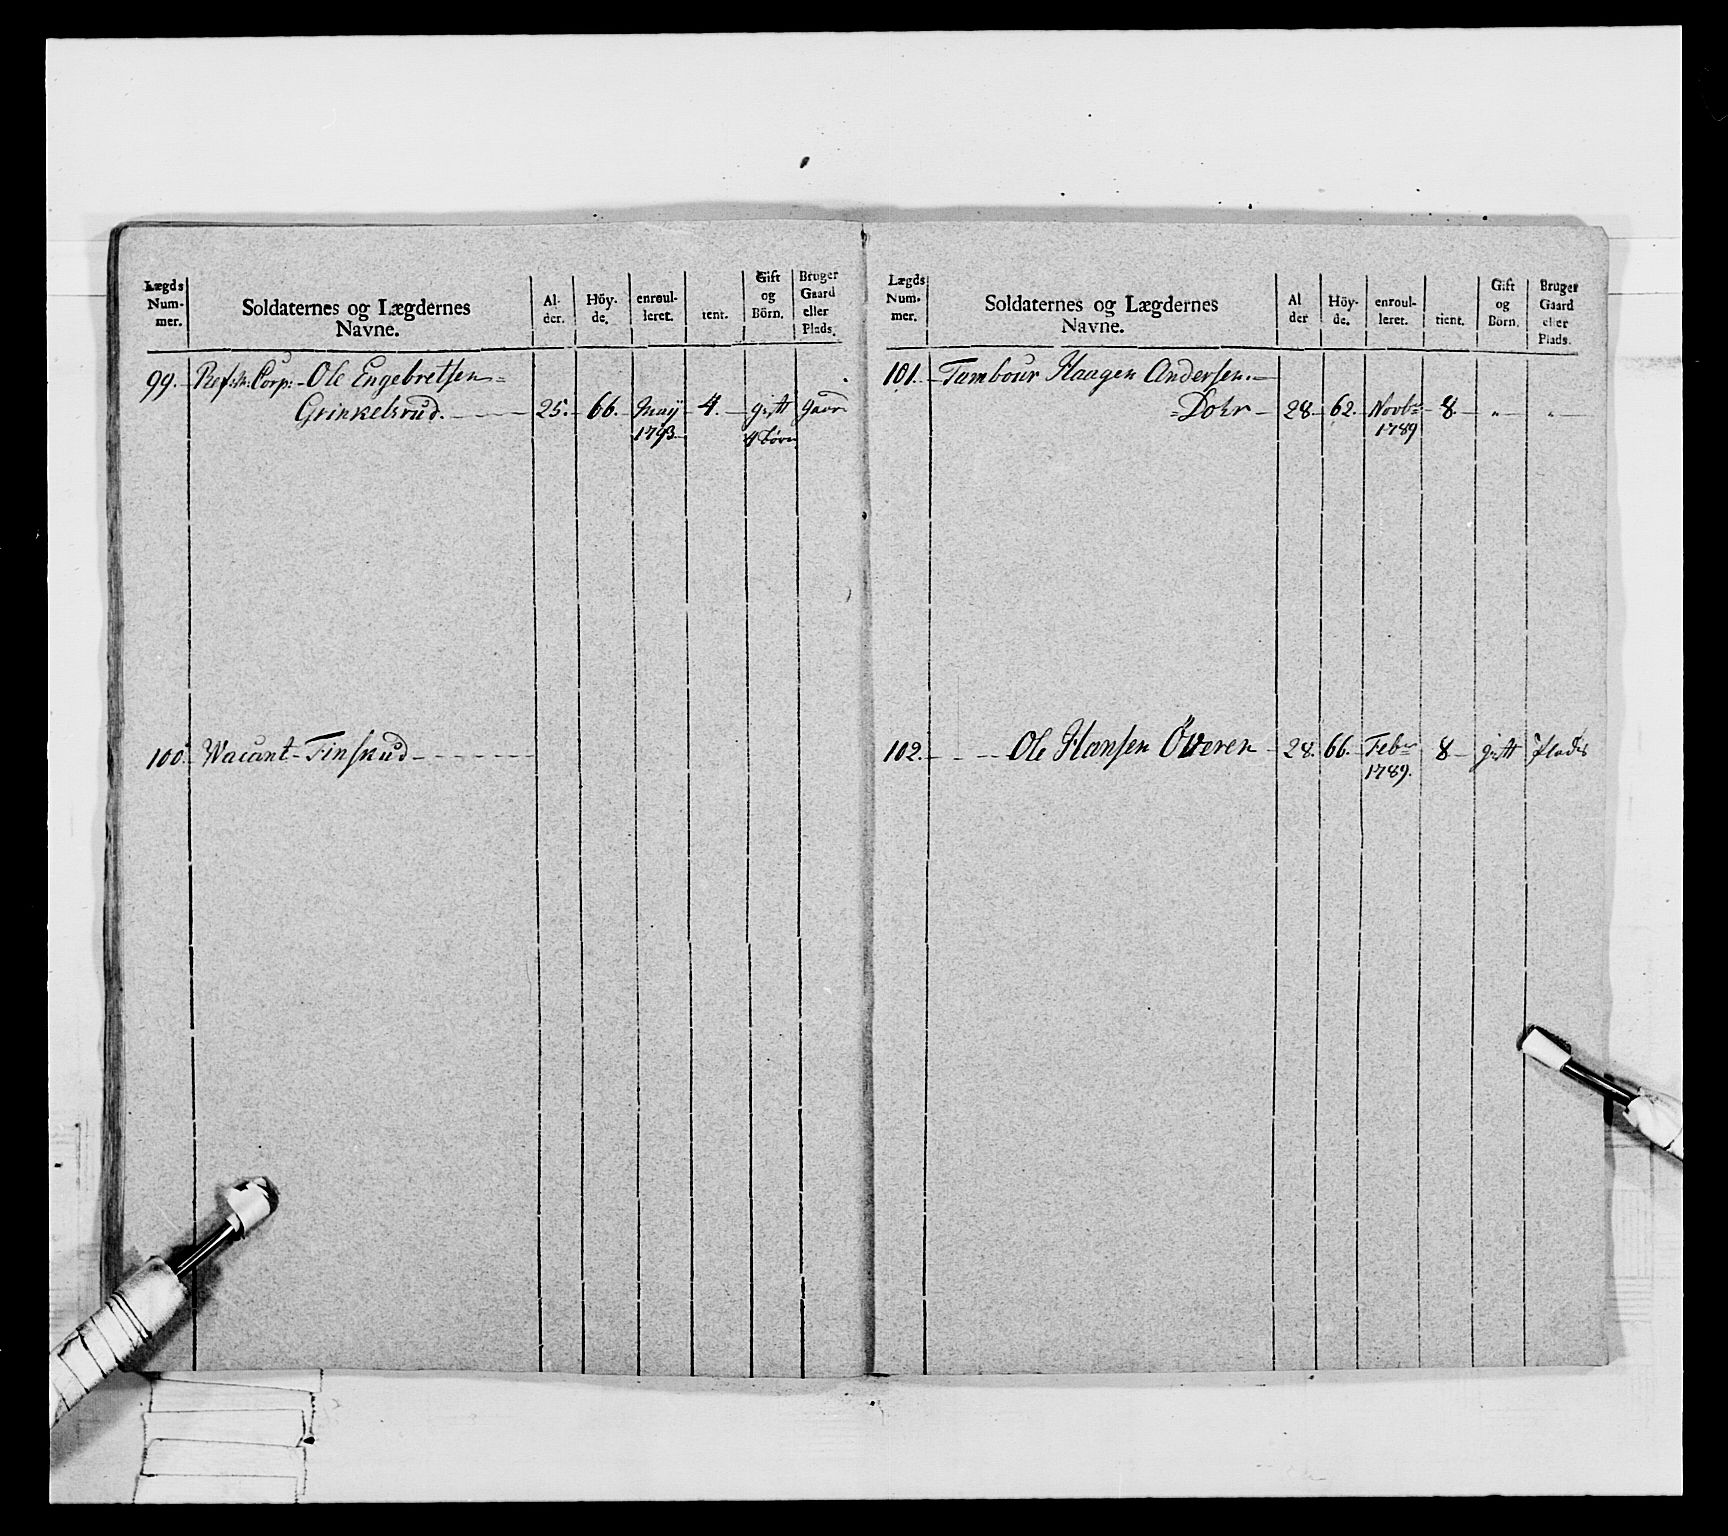 Lægds Num- mer. Soldaternes og Lægdernes Navne. Al- der. Höy- de. enroul- leret. tient. Gift og Börn. Bruger Gaard eller Plads.
99. Ref: Corp: Ole Engebretsen
Grinkelsrud. 25. 66. Maÿ 4. gift gaard
1793. 4 børn
100. Wacant Finsrud
Lægds Num- mer. Soldaternes og Lægdernes Navne. Al der Höy- de. enroul- leret. tient. Gift og Börn. Bruger Gaard eller Plads.
101. Tambour Haagen Andersen
Dohr 28 62. Novbr 8 " "
1789
102. Ole Hansen Överen 28. 66. Febr 8 gift Plads
1789.